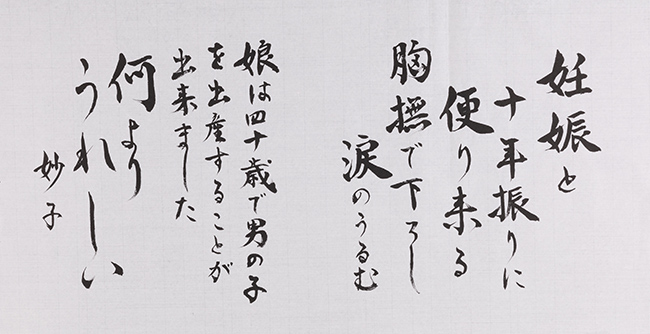 妊娠と
十年振りに
便り来る
胸撫で下ろし
涙のうるむ
娘は四十歳で男の子
を出産することが
出来ました
何より
うれしい
妙子